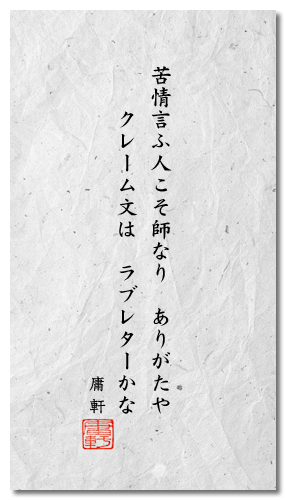 苦情言ふ人こそ師なり　ありがたや
クレーム文は　ラブレターかな
庸軒
庸軒